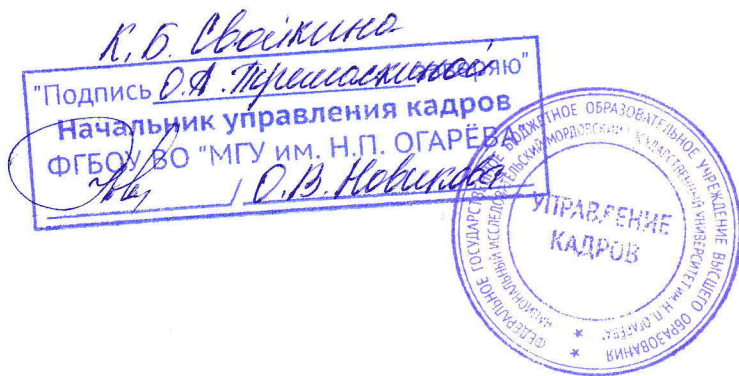 К.Б. Свойкина
"Подпись О.А. Тремаскиной заверяю"
Начальник управления кадров
ФГБОУ ВО "МГУ им. Н.П. ОГАРЁВА"
/ О.В. Новикова
ФЕДЕРАЛЬНОЕ ГОСУДАРСТВЕННОЕ БЮДЖЕТНОЕ ОБРАЗОВАТЕЛЬНОЕ УЧРЕЖДЕНИЕ ВЫСШЕГО ОБРАЗОВАНИЯ
НАЦИОНАЛЬНЫЙ ИССЛЕДОВАТЕЛЬСКИЙ МОРДОВСКИЙ ГОСУДАРСТВЕННЫЙ УНИВЕРСИТЕТ им. Н.П. ОГАРЁВА
УПРАВЛЕНИЕ
КАДРОВ